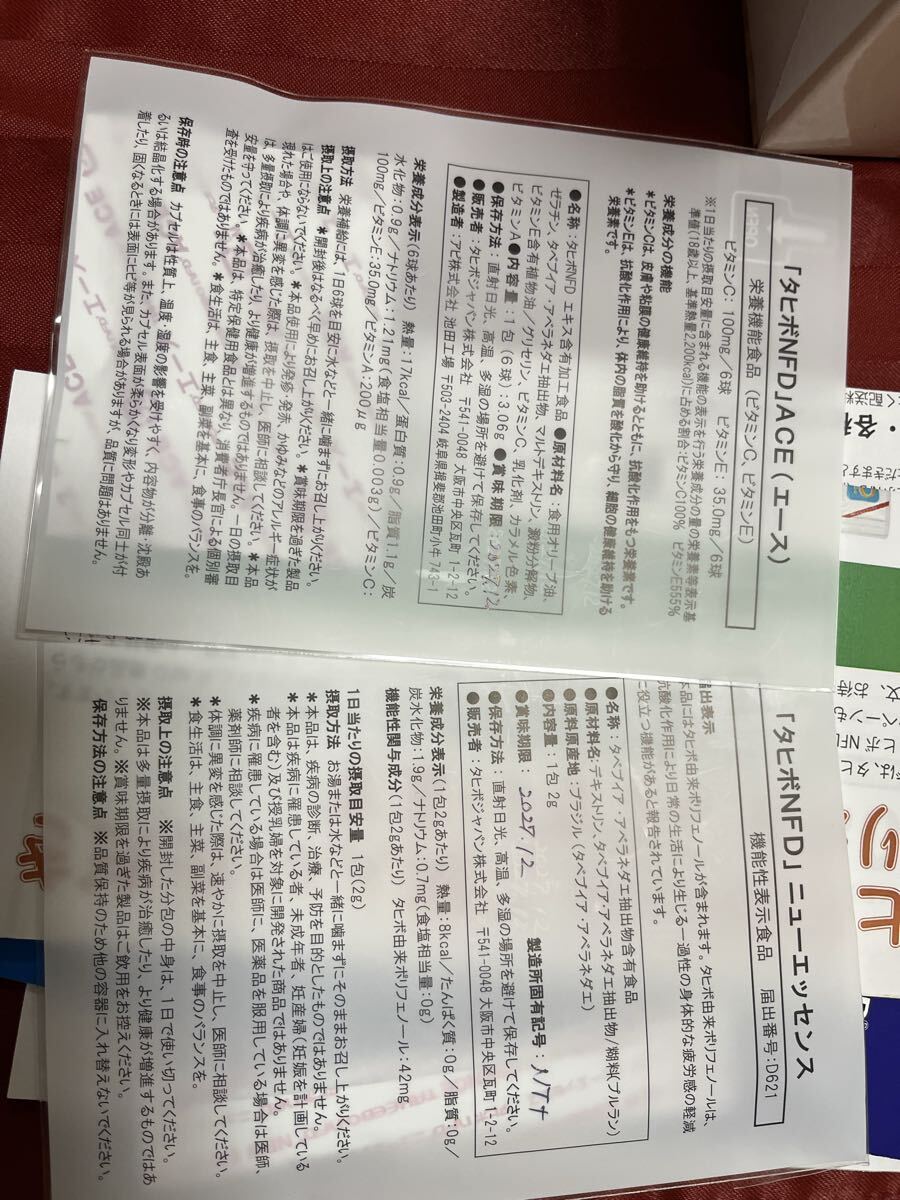 「タヒボNFD」ACE（エース）
栄養機能食品（ビタミンC、ビタミンE）
ビタミンC：100mg／6球　ビタミンE：35.0mg／6球
※1日当たりの摂取目安量に含まれる機能の表示を行う栄養成分の量の栄養素等表示基
準値（18歳以上、基準熱量2,200kcal）に占める割合：ビタミンC100%　ビタミンE555%
栄養成分の機能
＊ビタミンCは、皮膚や粘膜の健康維持を助けるとともに、抗酸化作用をもつ栄養素です。
＊ビタミンEは、抗酸化作用により、体内の脂質を酸化から守り、細胞の健康維持を助ける
栄養素です。
●名称：タヒボNFD エキス含有加工食品 ●原材料名：食用オリーブ油、
ゼラチン、タベブイア・アベラネダエ抽出物、マルトデキストリン、澱粉分解物、
ビタミンE含有植物油／グリセリン、ビタミンC、乳化剤、カラメル色素、
ビタミンA ●内容量：1包（6球）：3.06g ●賞味期限：
●保存方法：直射日光、高温、多湿の場所を避けて保存してください。
●販売者：タヒボジャパン株式会社 〒541-0048 大阪市中央区瓦町 1-2-12
●製造者：アピ株式会社 池田工場 〒503-2404 岐阜県揖斐郡池田町小牛 743-1
栄養成分表示（6球あたり） 熱量：17kcal／蛋白質：0.9g／脂質1.1g／炭
水化物：0.9g／ナトリウム：1.21mg（食塩相当量0.003g）／ビタミンC：
100mg／ビタミンE：35.0mg／ビタミンA：200μg
摂取方法 栄養補給には、1日6球を目安に水などと一緒に噛まずにお召し上がりください。
摂取上の注意点 ＊開封後はなるべく早めにお召し上がりください。＊賞味期限を過ぎた製品
はご使用にならないでください。＊本品使用により発疹・発赤、かゆみなどのアレルギー症状が
現れた場合や、体調に異変を感じた際は、摂取を中止し、医師に相談してください。＊本品
は、多量摂取により疾病が治癒したり、より健康が増進するものではありません。一日の摂取目
安量を守ってください。＊本品は、特定保健用食品とは異なり、消費者庁長官による個別審
査を受けたものではありません。＊食生活は、主食、主菜、副菜を基本に、食事のバランスを。
保存時の注意点 カプセルは性質上、温度・湿度の影響を受けやすく、内容物が分離・沈殿あ
るいは結晶化する場合があります。また、カプセル表面が柔らかくなり変形やカプセル同士が付
着したり、固くなるときには表面にヒビ等が見られる場合がありますが、品質に問題はありません。
「タヒボNFD」ニューエッセンス
機能性表示食品　届出番号：D621
届出表示
本品にはタヒボ由来ポリフェノールが含まれます。タヒボ由来ポリフェノールは、
抗酸化作用により日常の生活により生じる一過性の身体的な疲労感の軽減
に役立つ機能があると報告されています。
●名称：タベブイア・アベラネダエ抽出物含有食品
●原材料名：デキストリン、タベブイア・アベラネダエ抽出物／糊料（プルラン）
●原料原産地：ブラジル（タベブイア・アベラネダエ）
●内容量：1包 2g
●賞味期限：2027.12　製造所固有記号：NTT
●保存方法：直射日光、高温、多湿の場所を避けて保存してください。
●販売者：タヒボジャパン株式会社　〒541-0048 大阪市中央区瓦町 1-2-12
栄養成分表示（1包2gあたり） 熱量：8kcal／たんぱく質：0g／脂質：0g／
炭水化物：1.9g／ナトリウム：0.7mg（食塩相当量：0g）
機能性関与成分（1包2gあたり） タヒボ由来ポリフェノール：42mg
1日当たりの摂取目安量　1包（2g）
摂取方法　お湯または水などと一緒に噛まずにそのままお召し上がりください。
＊本品は、疾病の診断、治療、予防を目的としたものではありません。
＊本品は疾病に罹患している者、未成年者、妊産婦（妊娠を計画している
者を含む）及び授乳婦を対象に開発された商品ではありません。
＊疾病に罹患している場合は医師に、医薬品を服用している場合は医師、
薬剤師に相談してください。
＊体調に異変を感じた際は、速やかに摂取を中止し、医師に相談してください。
＊食生活は、主食、主菜、副菜を基本に、食事のバランスを。
摂取上の注意点　※開封した分包の中身は、1日で使い切ってください。
※本品は多量摂取により疾病が治癒したり、より健康が増進するものではあ
りません。※賞味期限を過ぎた製品はご飲用をお控えください。
保存方法の注意点　※品質保持のため他の容器に入れ替えないでください。